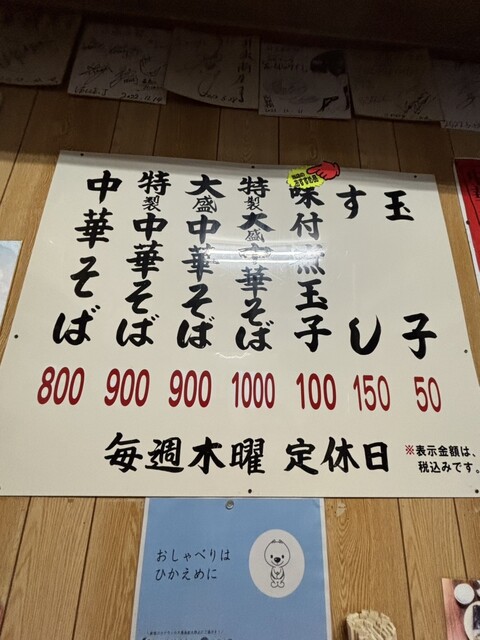 中華そば
特製中華そば
大盛中華そば
特製大盛中華そば
味付煮玉子
すし
玉子
800 900 900 1000 100 150 50
毎週木曜 定休日
※表示金額は、
税込みです。
おしゃべりは
ひかえめに